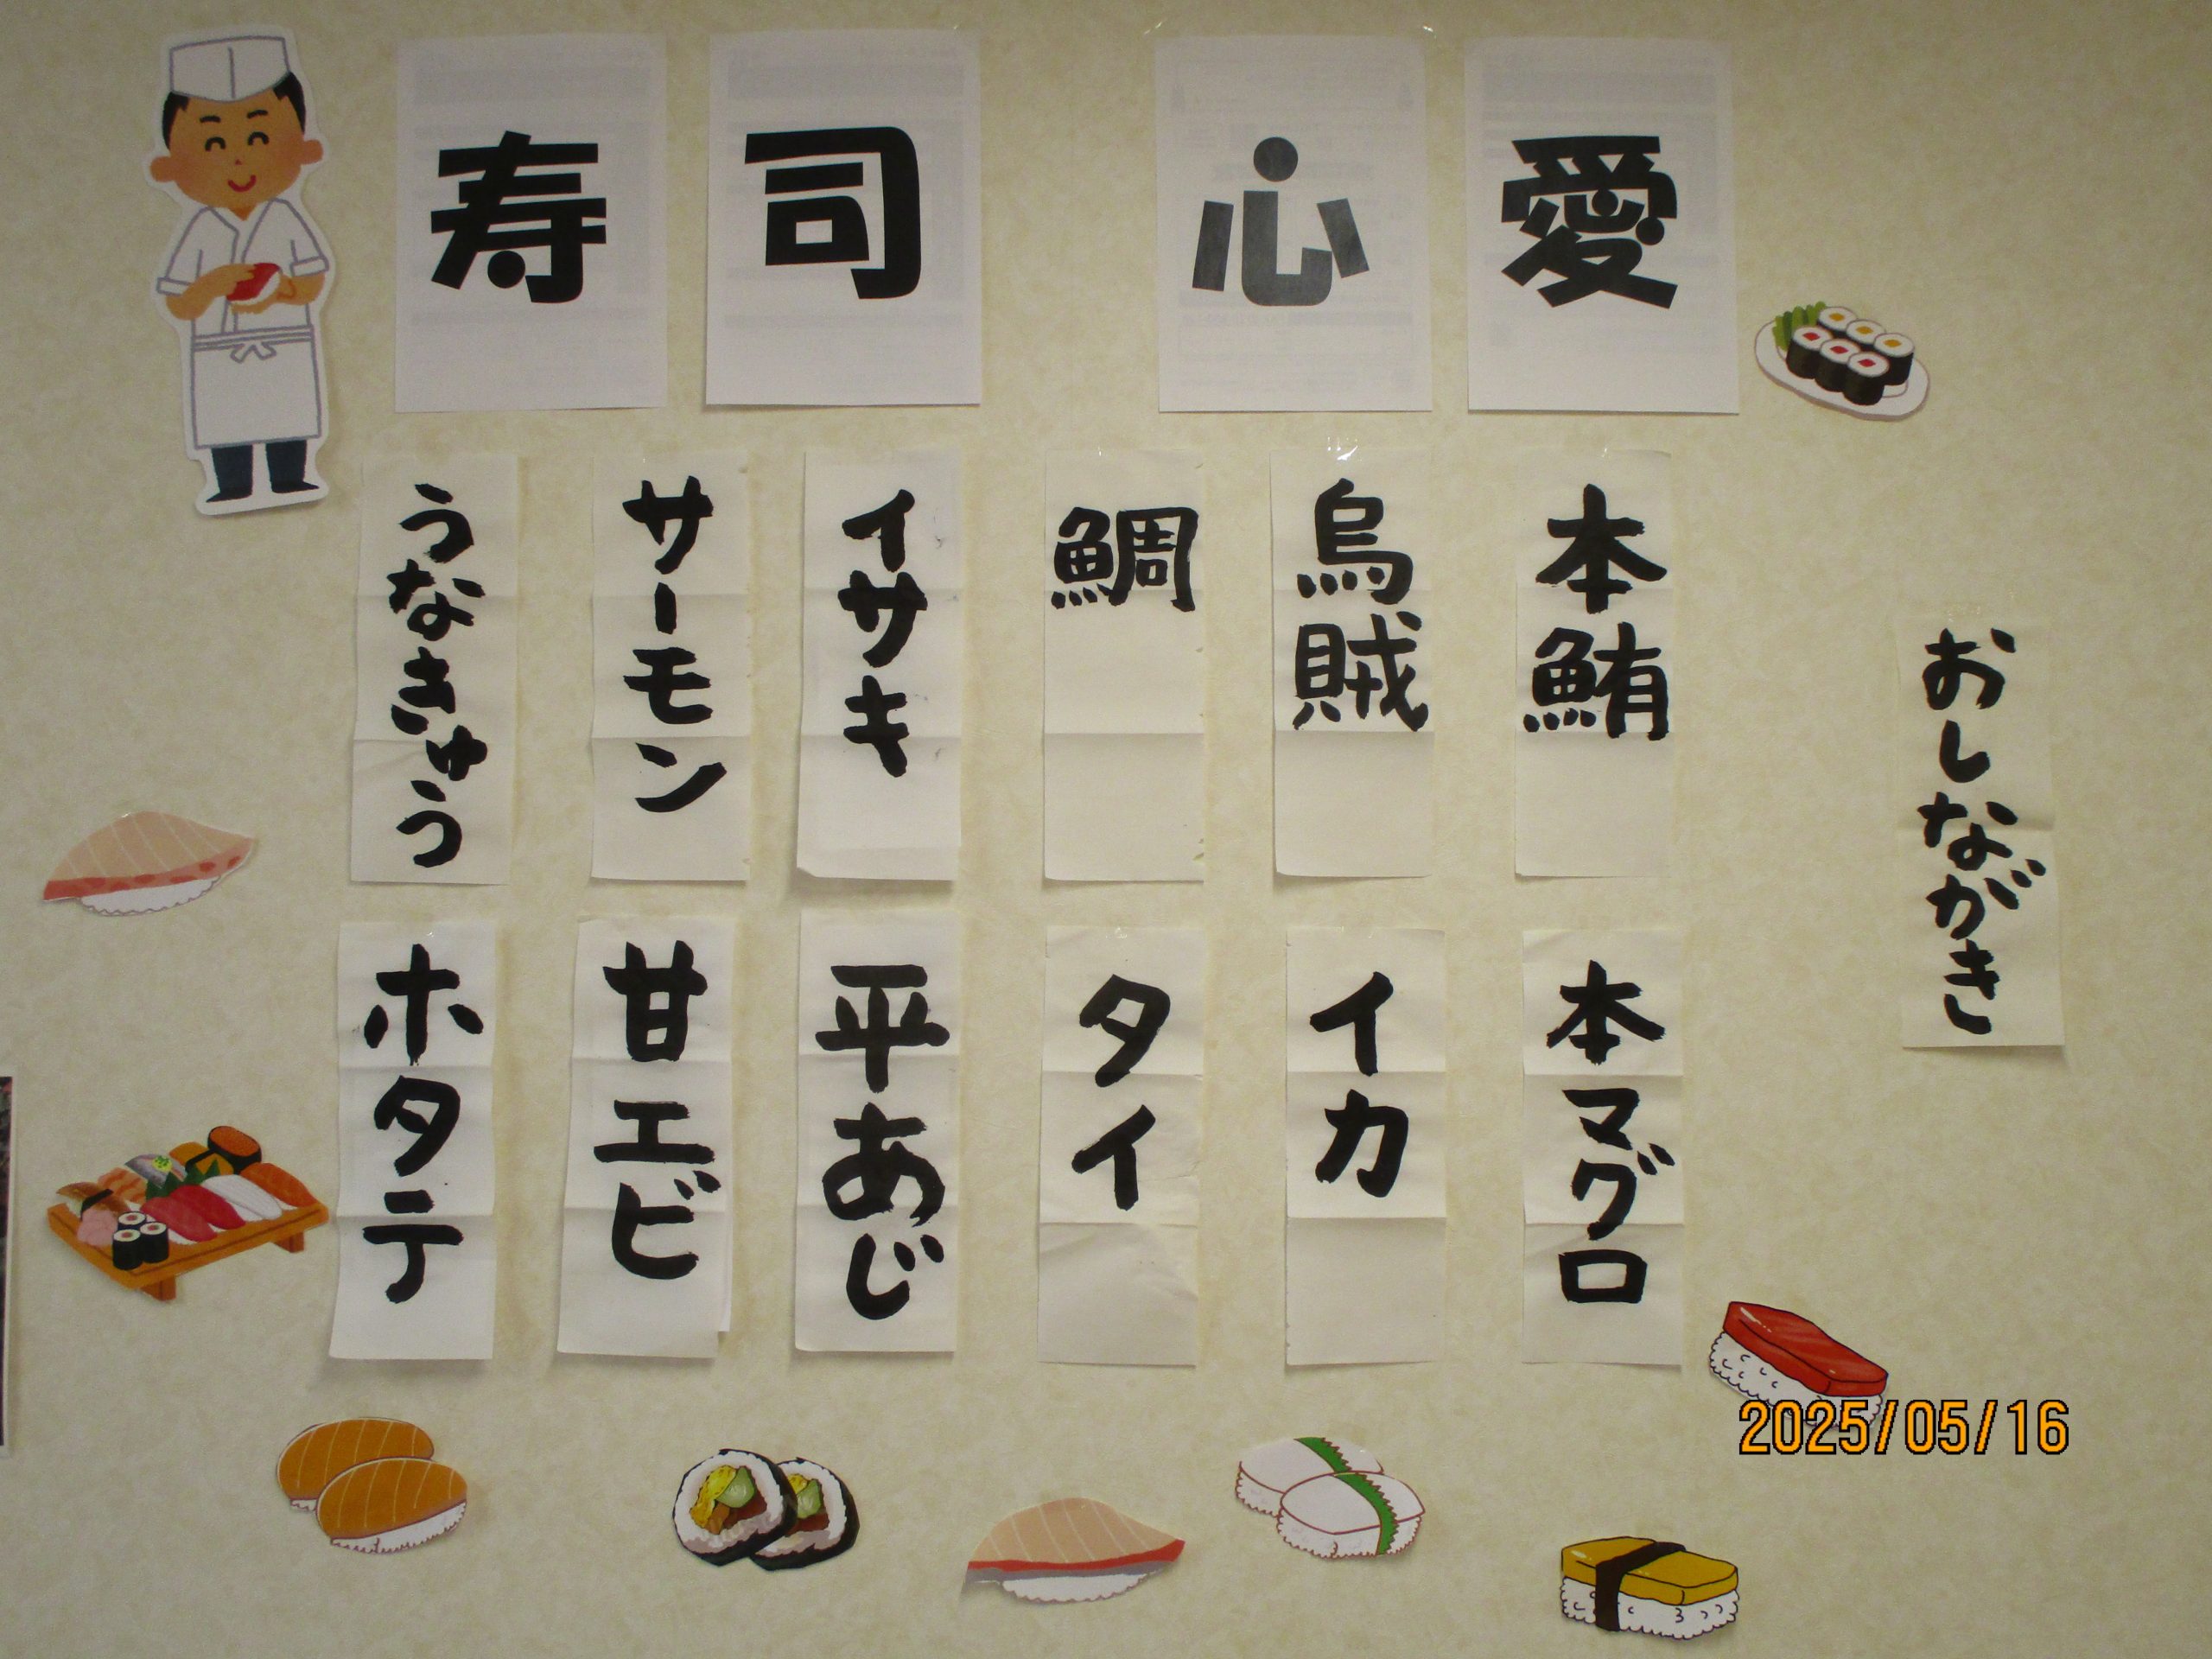 寿司 心愛
おしながき
本鮪
烏賊
鯛
イサキ
サーモン
うなきゅう
本マグロ
イカ
タイ
平あじ
甘エビ
ホタテ
2025/05/16